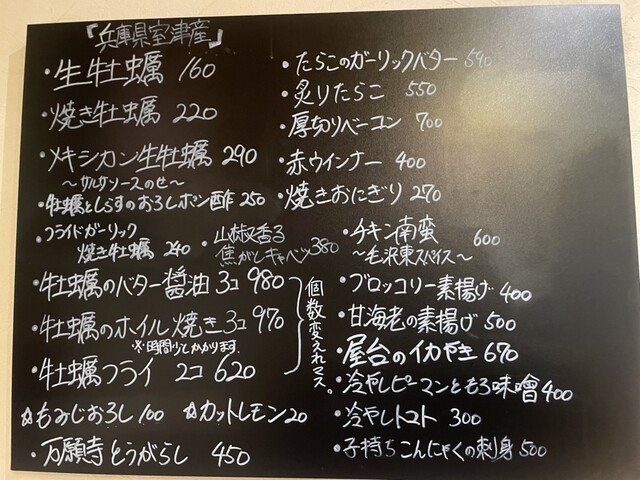 『兵庫県室津産』
・生牡蠣 160
・焼き牡蠣 220
・メキシカン生牡蠣 290
〜サルサソースのせ〜
・牡蠣としらすのおろしポン酢 250
・フライドガーリック
焼き牡蠣 240
・山椒香る
焦がしキャベツ 380
・牡蠣のバター醤油 3コ 980
・牡蠣のホイル焼き 3コ 970
※時間少しかかります
・牡蠣フライ 2コ 620
個数変えれマス。
☆もみじおろし 100 ☆カットレモン 20
・万願寺とうがらし 450
・たらこのガーリックバター 590
・炙りたらこ 550
・厚切りベーコン 700
・赤ウインナー 400
・焼きおにぎり 270
・チキン南蛮 600
〜毛沢東スパイス〜
・ブロッコリー素揚げ 400
・甘海老の素揚げ 500
・屋台のイカやき 670
・冷やしピーマンともろ味噌 400
・冷やしトマト 300
・子持ちこんにゃくの刺身 500